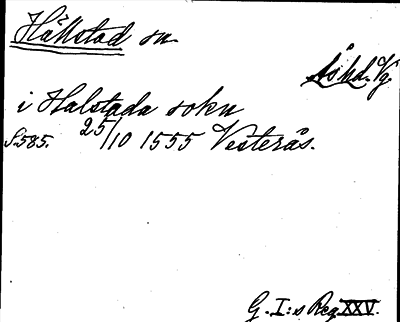 Hällstad sn
Ås hd. Vg.
i Halstada sokn
S. 585. 25/10 1555 Vesterås.
G. I:s Reg. XXV.